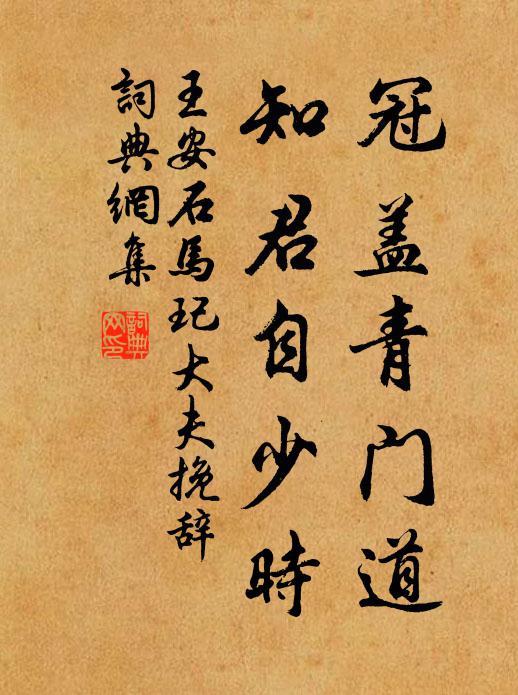 冠盖青门道
知君自少時
王安石馬玘大夫挽辞
詞典網集
詞典网印